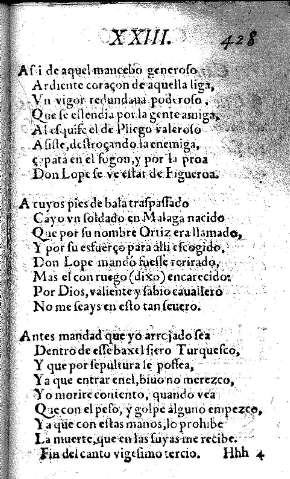 XXIII. 428
Assi de aquel mancebo generoso
Ardiente coraçon de aquella liga,
Vn vigor redundaua poderoso,
Que se estendia por la gente amiga,
Al esquife el de Pliego valeroso
Asiste, destroçando la enemiga,
çapata en el fogon, y por la proa
Don Lope se ve estar de Figueroa.
A cuyos pies de bala traspassado
Cayo vn soldado en Malaga nacido
Que por su nombre Ortiz era llamado,
Y por su esfuerço para alli escogido,
Don Lope mandò fuesse retirado,
Mas el con ruego (dixo) encarecido:
Por Dios, valiente y sabio cauallero
No me seays en esto tan seuero.
Antes mandad que yo arrojado sea
Dentro de esse baxel fiero Turquesco,
Y que por sepultura le possea,
Ya que entrar en el, biuo no merezco,
Yo morire contento, quando vea
Que con el peso, y golpe alguno empezco,
Ya que con estas manos, lo prohibe
La muerte, que en las suyas me recibe.
Fin del canto vigesimo tercio. Hhh 4